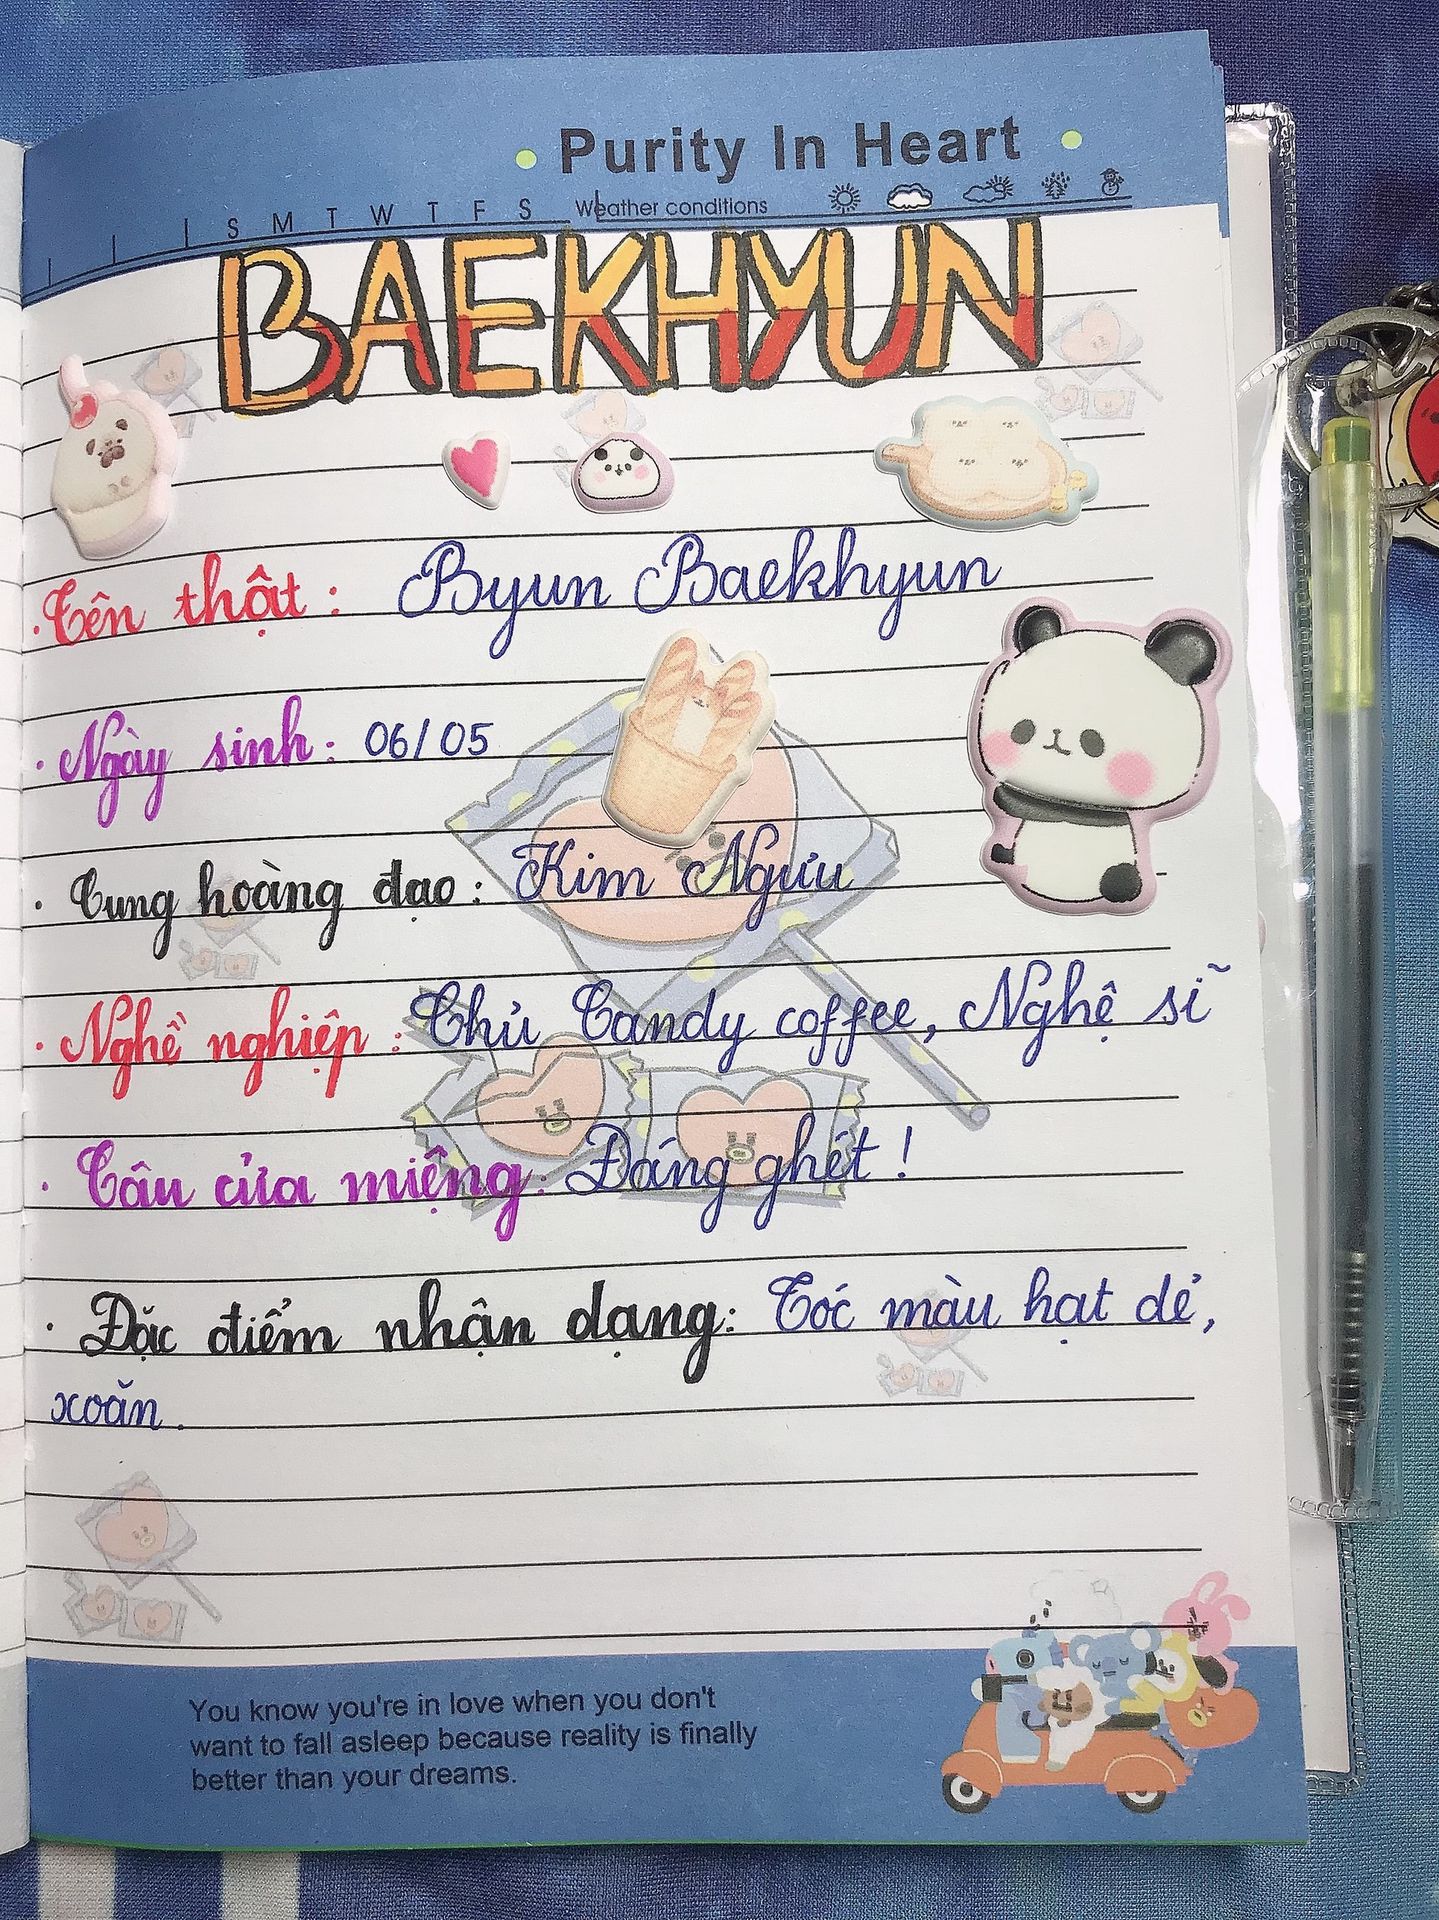 Purity In Heart
S M T W T F S Weather conditions
BAEKHYUN
. Tên thật : Byun Baekhyun
. Ngày sinh : 06/05
. Cung hoàng đạo : Kim Ngưu
. Nghề nghiệp : Chủ Candy coffee, Nghệ sĩ
. Câu cửa miệng : Đáng ghét !
. Đặc điểm nhận dạng : Tóc màu hạt dẻ,
xoăn .
You know you're in love when you don't
want to fall asleep because reality is finally
better than your dreams.